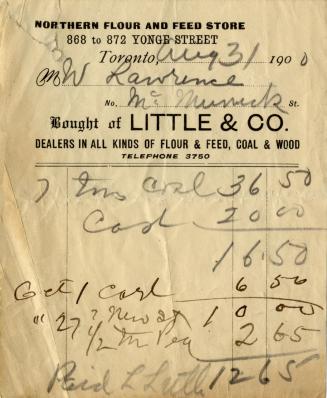 NORTHERN FLOUR AND FEED STORE
868 to 872 YONGE STREET
Toronto, Aug 31 1900
M W Lawrence
No. Mc Murrick St.
Bought of LITTLE & CO.
DEALERS IN ALL KINDS OF FLOUR & FEED, COAL & WOOD
TELEPHONE 3750
7 Tns Coal 36 50
Cash 20 00
16.50
Oct 1 cash 6 50
" 27 10 00
1/2 2 65
Paid L Little 12 65